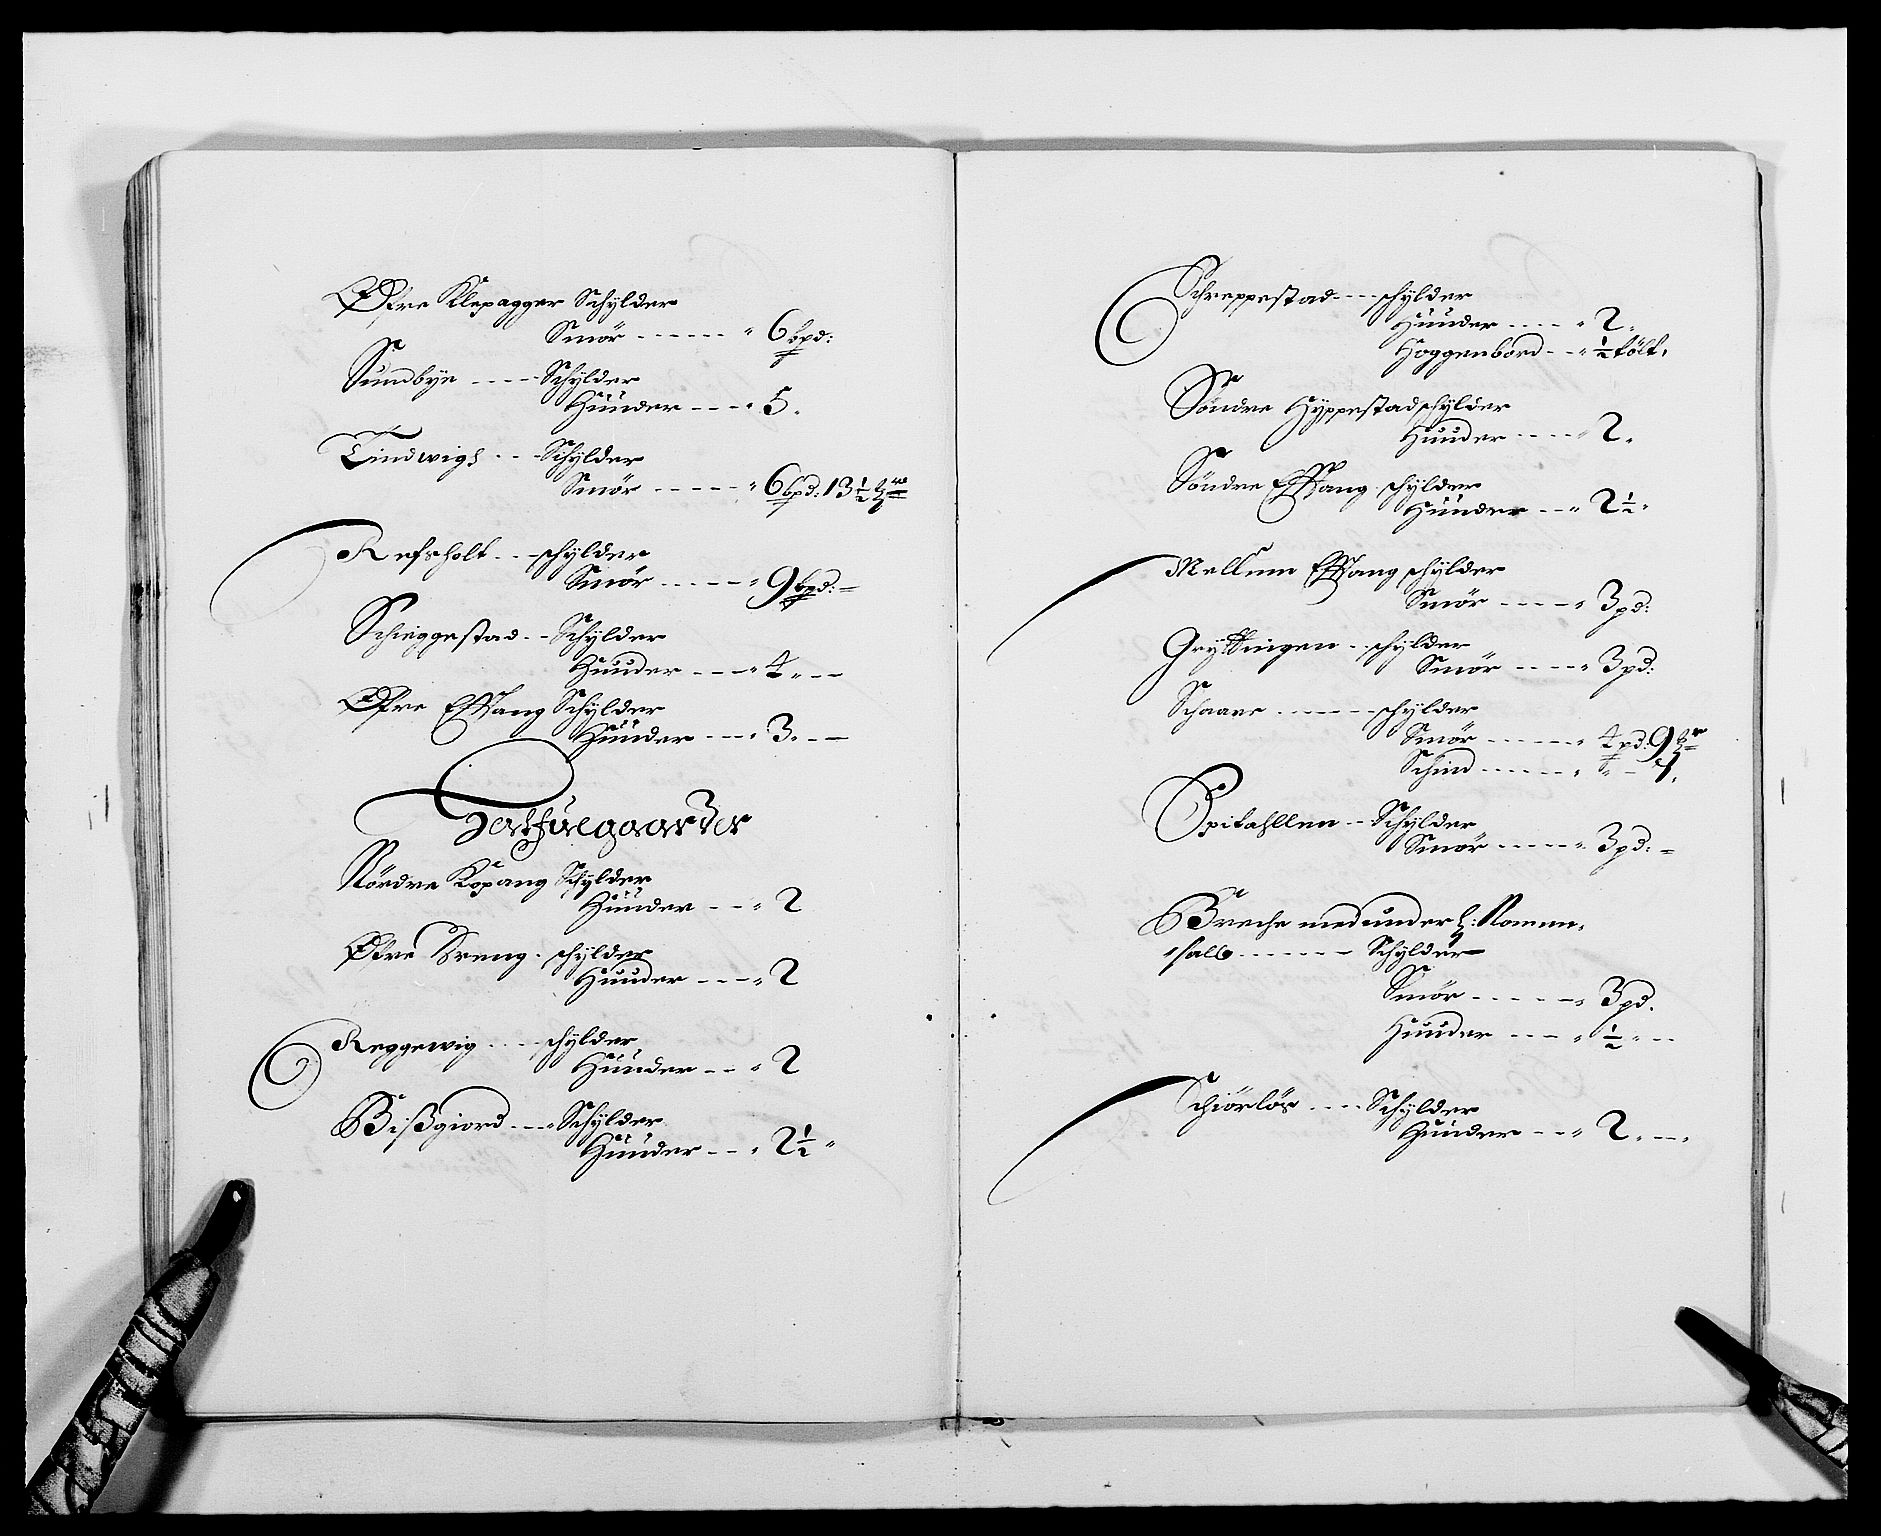 Øfre Klepagger Schylder
Smör ------ " 6 bpd:
Sundbÿe ---- Schylder
Hüüder --- " 5.
Tindwigh --- Schylder
Smör ----- " 6 bpd: 13½
Refsholt --- schylder
Smör ----- " 9 bpd: =
Schieggestad -- Schylder
Huuder --- " 4. --
Øfre Effang Schylder
Hüüder --- " 3. --
Nordre Kopang Schylder
Hüüder -- " 2
Øfre Sreng. schylder
Huuder --- " 2
Reggewig ---- schylder
Hüüder -- " 2
Bißgiord --- Schylder
Hüüder -- " 2½ "
Schreppestad --- schylder
Huuder ---- " 2.
Hoggenbord -- " ½ tölt.
Söndre Hyppestad schylder
Huuder ---- " 2.
Söndre Effang. schylder
Hüüder -- " 2½ "
Mellum Effang schylder
Smör ---- " 3 pd:
Gryttingen -- schylder
Smör ---- " 3 pd:
Schaare ------ schylder
Smör ----- " 4 pd: 9
Schind ----- " " - 1.
Spitahllen -- Schylder
Smör ---- " 3 pd: =
Breche med under h: Ramm,
Schylder
Smör ----- " 3 pd.
Huuder --- " ½ " --
Schiörlös ---- Schylder
Huuder -- " 2. --